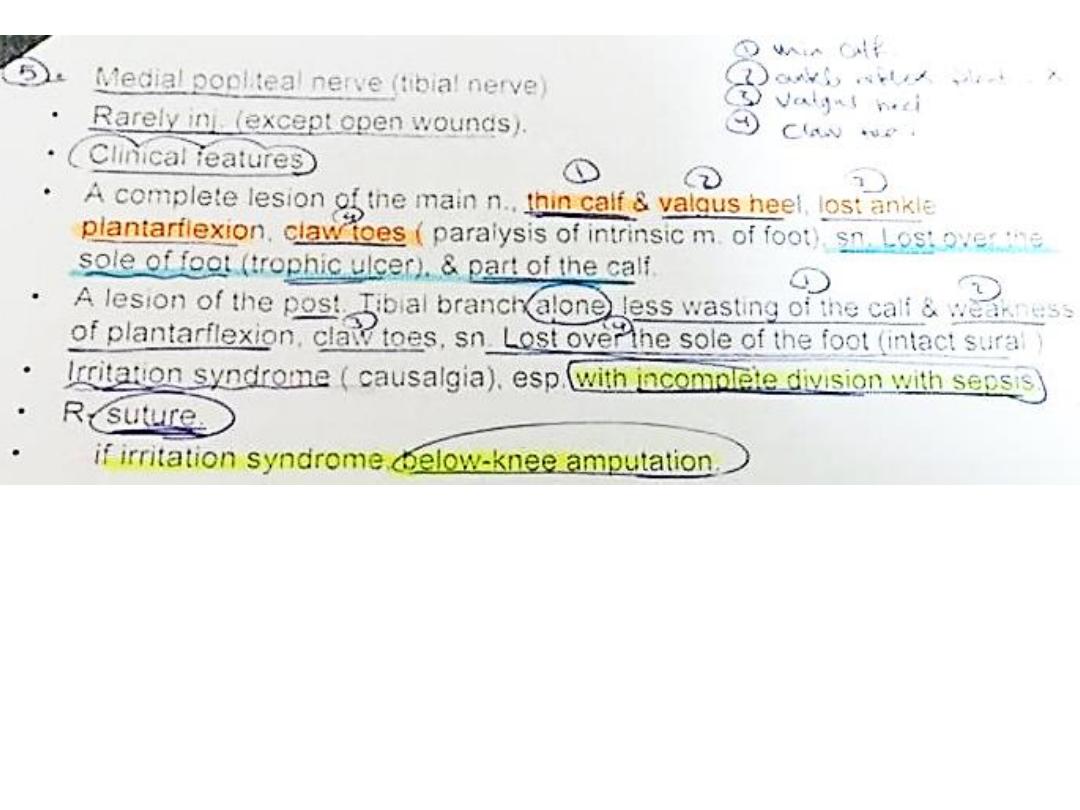 ① thin calf
② ankle reflex plant
③ valgus heel
④ claw toe
5. Medial popliteal nerve (tibial nerve)
• Rarely inj. (except open wounds).
• Clinical features
• A complete lesion of the main n., thin calf & valgus heel, lost ankle
plantarflexion, claw toes ( paralysis of intrinsic m. of foot), sn. Lost over the
sole of foot (trophic ulcer), & part of the calf.
• A lesion of the post. Tibial branch alone, less wasting of the calf & weakness
of plantarflexion, claw toes, sn. Lost over the sole of the foot (intact sural )
• Irritation syndrome ( causalgia), esp. with incomplete division with sepsis.
• R- suture.
• if irritation syndrome, below-knee amputation.